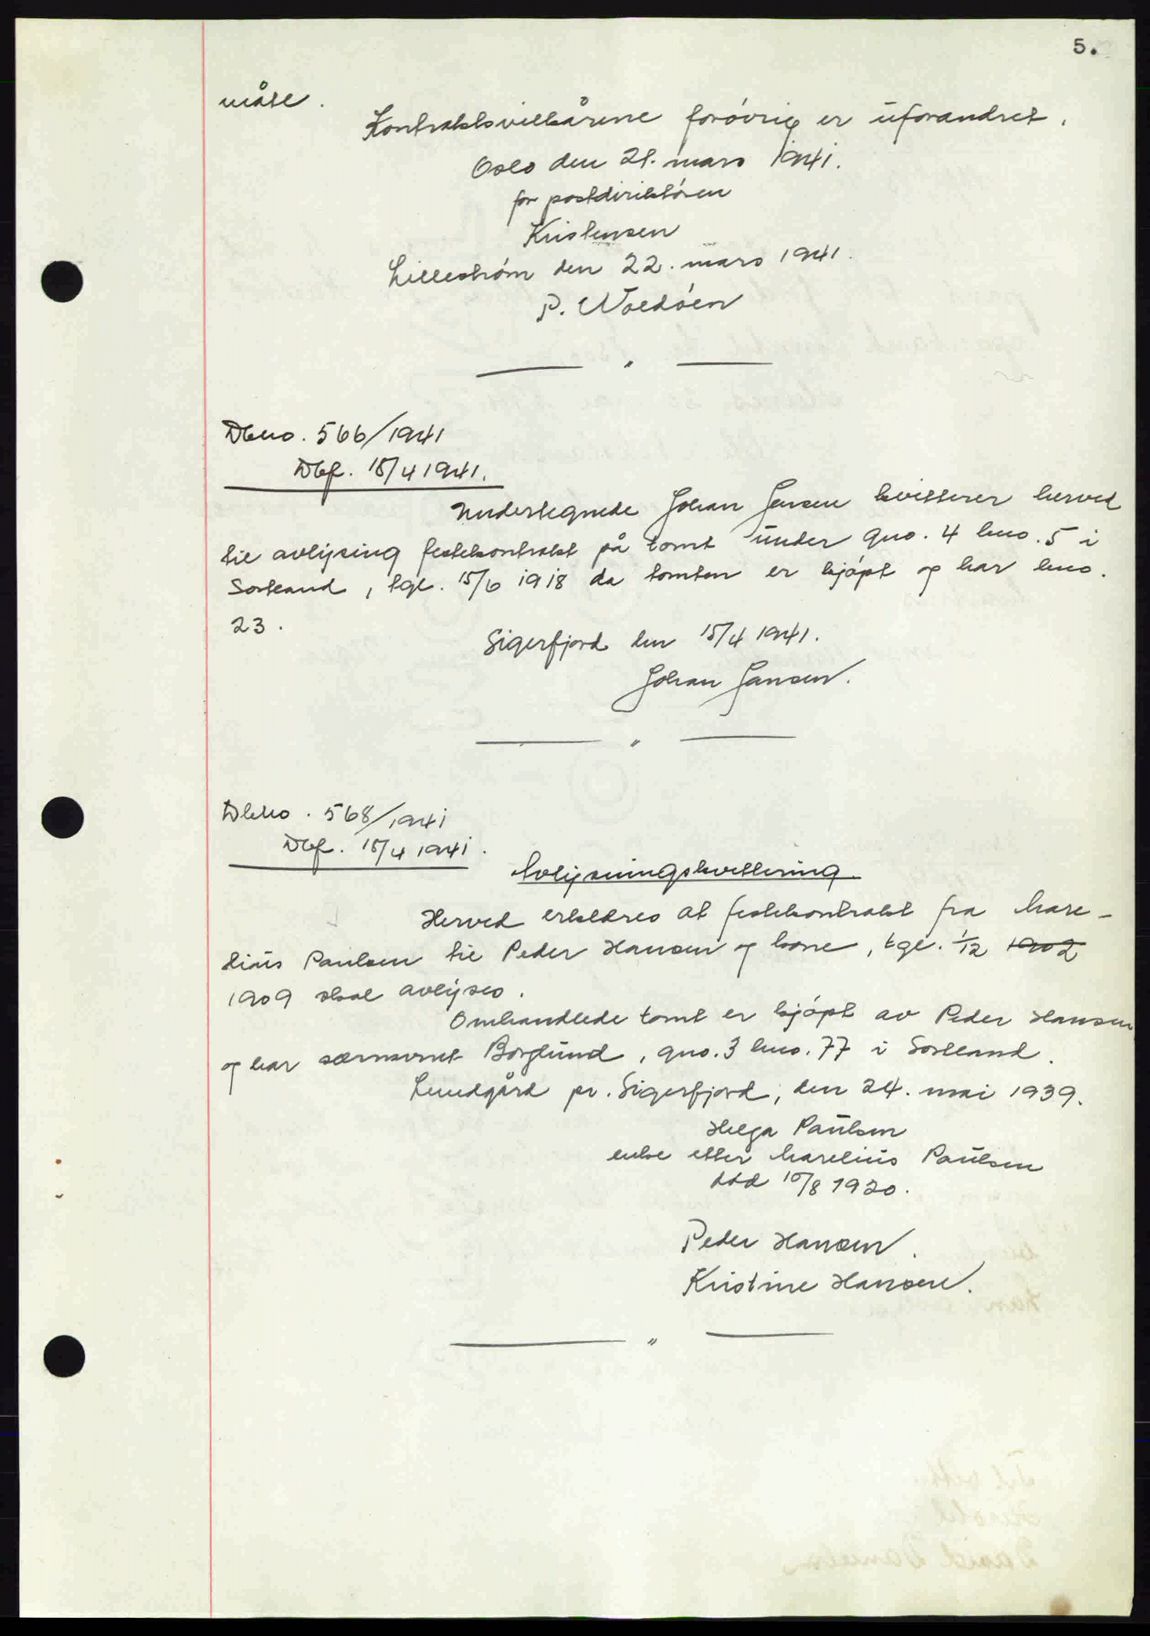 5.
måte.
Kontraktsvilkårene forøvrig er uforandret.
Oslo den 21. mars 1941.
for postdirektøren
Kristensen
Lillestrøm den 22. mars 1941.
P.
"
Dbno. 566/1941
Dbf. 15/4 1941.
Undertegnede Johan Jensen kvitterer herved
til avlysing festekontrakt på tomt under gno. 4 bno. 5 i
Sortland, tgl. 15/6 1918 da tomten er kjøpt og har bno.
23.
Sigerfjord den 15/4 1941.
Johan Jensen.
"
Dbno. 568/1941
Dbf. 15/4 1941.
Avlysningskvittering
Herved erklæres at festekontrakt fra Mare-
lius Paulsen til Peder Hansen og kone, tgl. 1/12 1902
1909 skal avlyses.
Omhandlede tomt er kjøpt av Peder Hansen
og har særnavnet Borglund, gno. 3 bno. 77 i Sortland.
Lundgård pr. Sigerfjord, den 24. mai 1939.
Helga Paulsen
enke etter Marelius Paulsen
død 10/8 1920.
Peder Hansen.
Kristine Hansen.
"